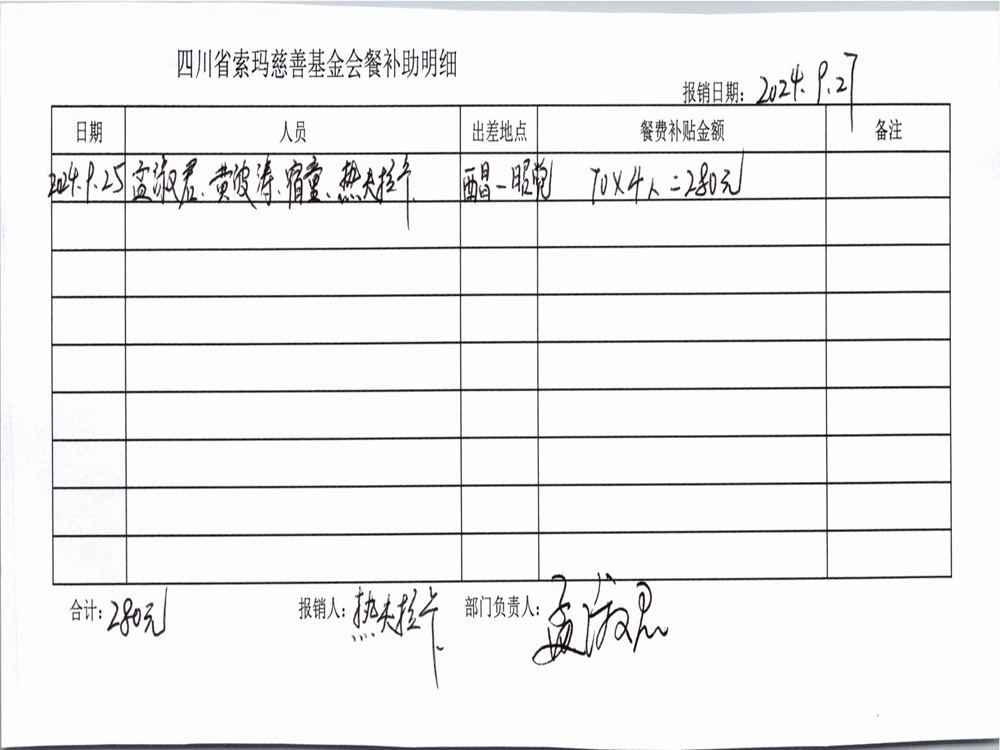 四川省索玛慈善基金会餐补助明细
报销日期：2024.9.27
日期 人员 出差地点 餐费补贴金额 备注
2024.9.25 孟淑君、黄波涛、宿童、热夫拉卡 西昌—昭觉 70×4人=280元
合计：280元 报销人：热夫拉卡 部门负责人：孟淑君